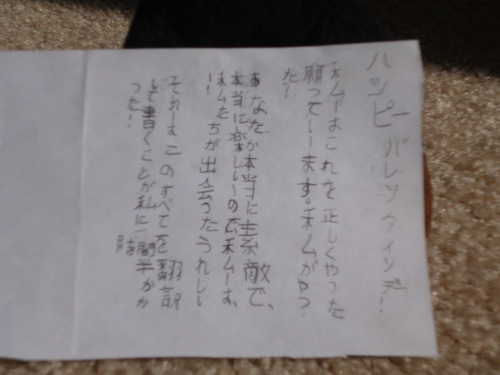 ハッピー バレンタインデー!
私はこれを正しくやった
願っています。私がやっ
た?
あなたが本当に素敵で、
本当に楽しいので私は、
私たちが出会うたうれしい
!
それはこのすべてを翻訳
して書くことが私に一時間半かか
った!